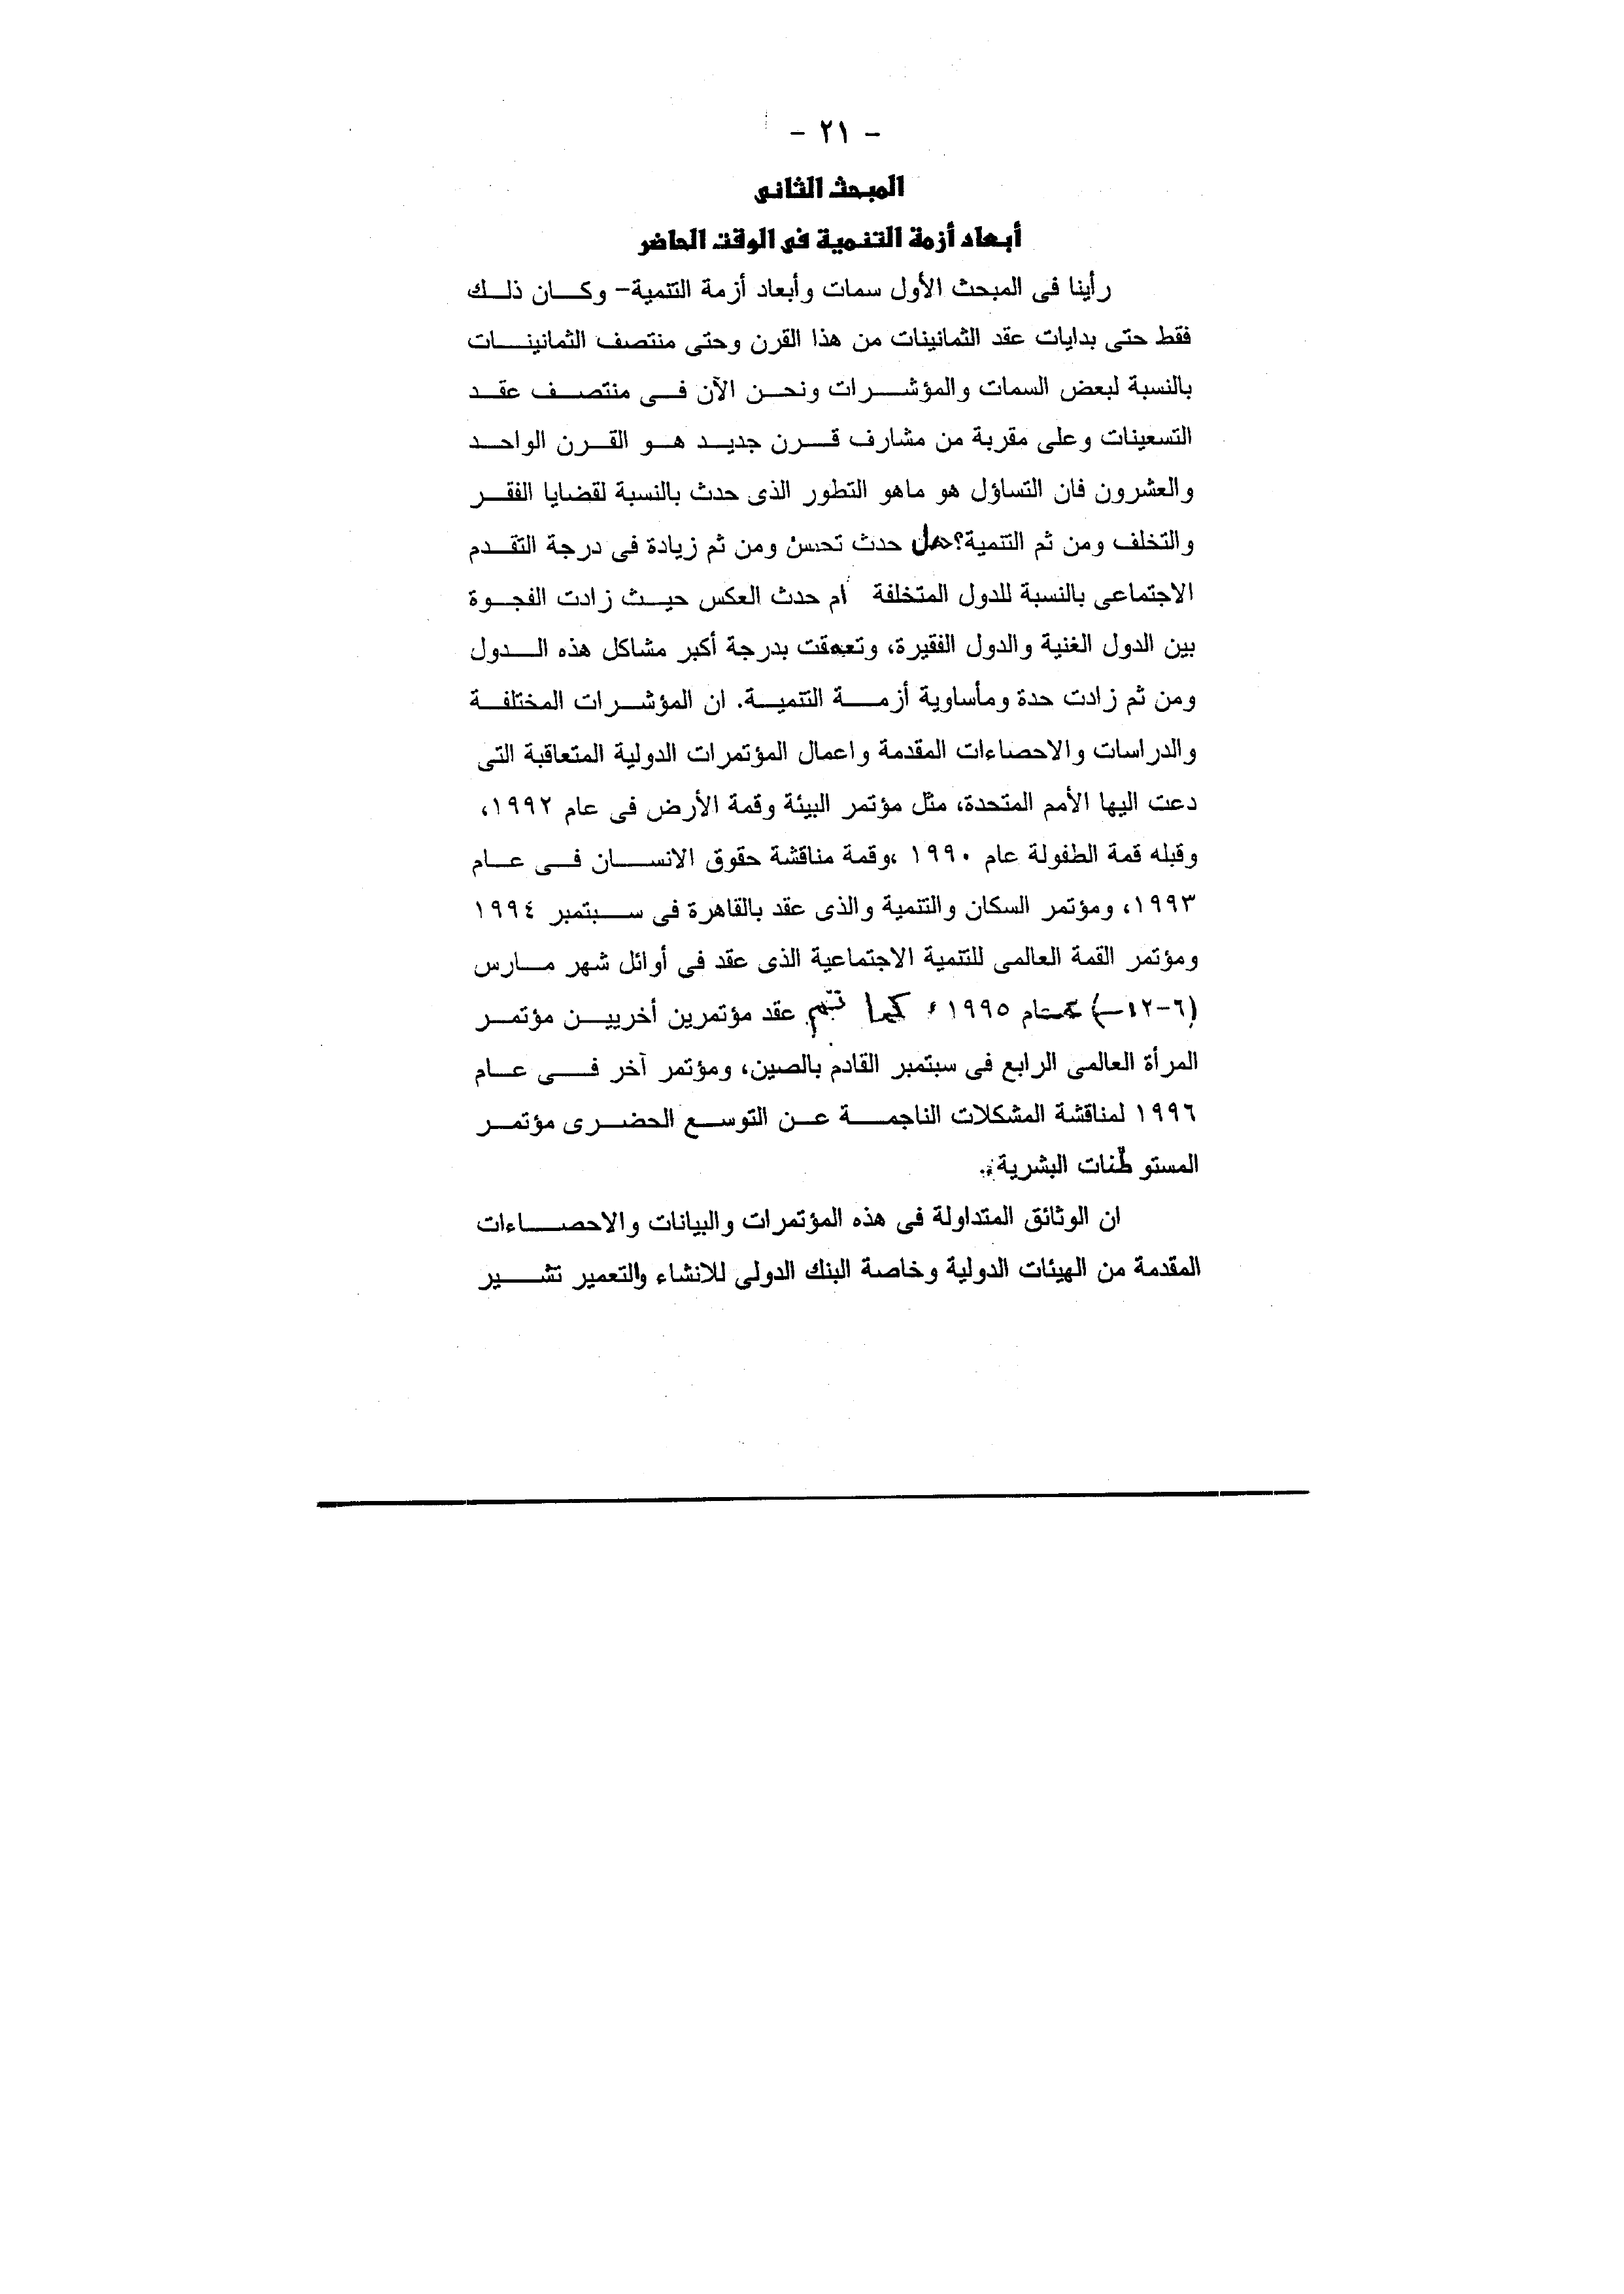 - ٢١ -
المبحث الثانى
أبعاد أزمة التنمية فى الوقت الحاضر
رأينا فى المبحث الأول سمات وأبعاد أزمة التنمية- وكان ذلك
فقط حتى بدايات عقد الثمانينات من هذا القرن وحتى منتصف الثمانينات
بالنسبة لبعض السمات والمؤشرات ونحن الآن فى منتصف عقد
التسعينات وعلى مقربة من مشارف قرن جديد هو القرن الواحد
والعشرون فان التساؤل هو ماهو التطور الذى حدث بالنسبة لقضايا الفقر
والتخلف ومن ثم التنمية؟ هل حدث تحسن ومن ثم زيادة فى درجة التقدم
الاجتماعى بالنسبة للدول المتخلفة أم حدث العكس حيث زادت الفجوة
بين الدول الغنية والدول الفقيرة، وتعمقت بدرجة أكبر مشاكل هذه الدول
ومن ثم زادت حدة ومأساوية أزمة التنمية. ان المؤشرات المختلفة
والدراسات والاحصاءات المقدمة واعمال المؤتمرات الدولية المتعاقبة التى
دعت اليها الأمم المتحدة، مثل مؤتمر البيئة وقمة الأرض فى عام ١٩٩٢،
وقبله قمة الطفولة عام ١٩٩٠ ،وقمة مناقشة حقوق الانسان فى عام
١٩٩٣، ومؤتمر السكان والتنمية والذى عقد بالقاهرة فى سبتمبر ١٩٩٤
ومؤتمر القمة العالمى للتنمية الاجتماعية الذى عقد فى أوائل شهر مارس
(٦-١٢) عام ١٩٩٥، كما تم عقد مؤتمرين أخريين مؤتمر
المرأة العالمى الرابع فى سبتمبر القادم بالصين، ومؤتمر آخر فى عام
١٩٩٦ لمناقشة المشكلات الناجمة عن التوسع الحضرى مؤتمر
المستوطنات البشرية.
ان الوثائق المتداولة فى هذه المؤتمرات والبيانات والاحصاءات
المقدمة من الهيئات الدولية وخاصة البنك الدولى للانشاء والتعمير تشير